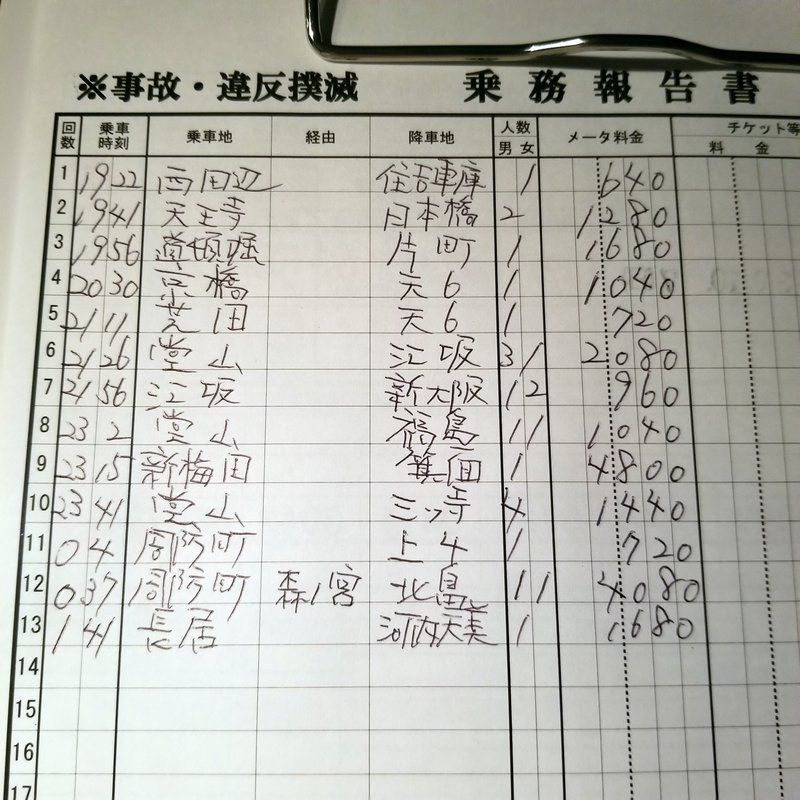 ※事故・違反撲滅 乗務報告書
回数 乗車時刻 乗車地 経由 降車地 人数 男 女 メータ料金 チケット等 料金
1 19 22 西田辺 住吉車庫 1 640
2 19 41 天王寺 日本橋 2 1280
3 19 56 道頓堀 片町 1 1680
4 20 30 京橋 天6 1 1040
5 21 11 芝田 天6 1 720
6 21 26 堂山 江坂 3 1 2080
7 21 56 江坂 新大阪 1 2 960
8 23 2 堂山 福島 1 1 1040
9 23 15 新梅田 箕面 1 4800
10 23 41 堂山 三ッ寺 4 1440
11 0 4 周防町 上4 1 720
12 0 37 周防町 森ノ宮 北畠 1 1 4080
13 1 41 長居 河内天美 1 1680
14
15
16
17